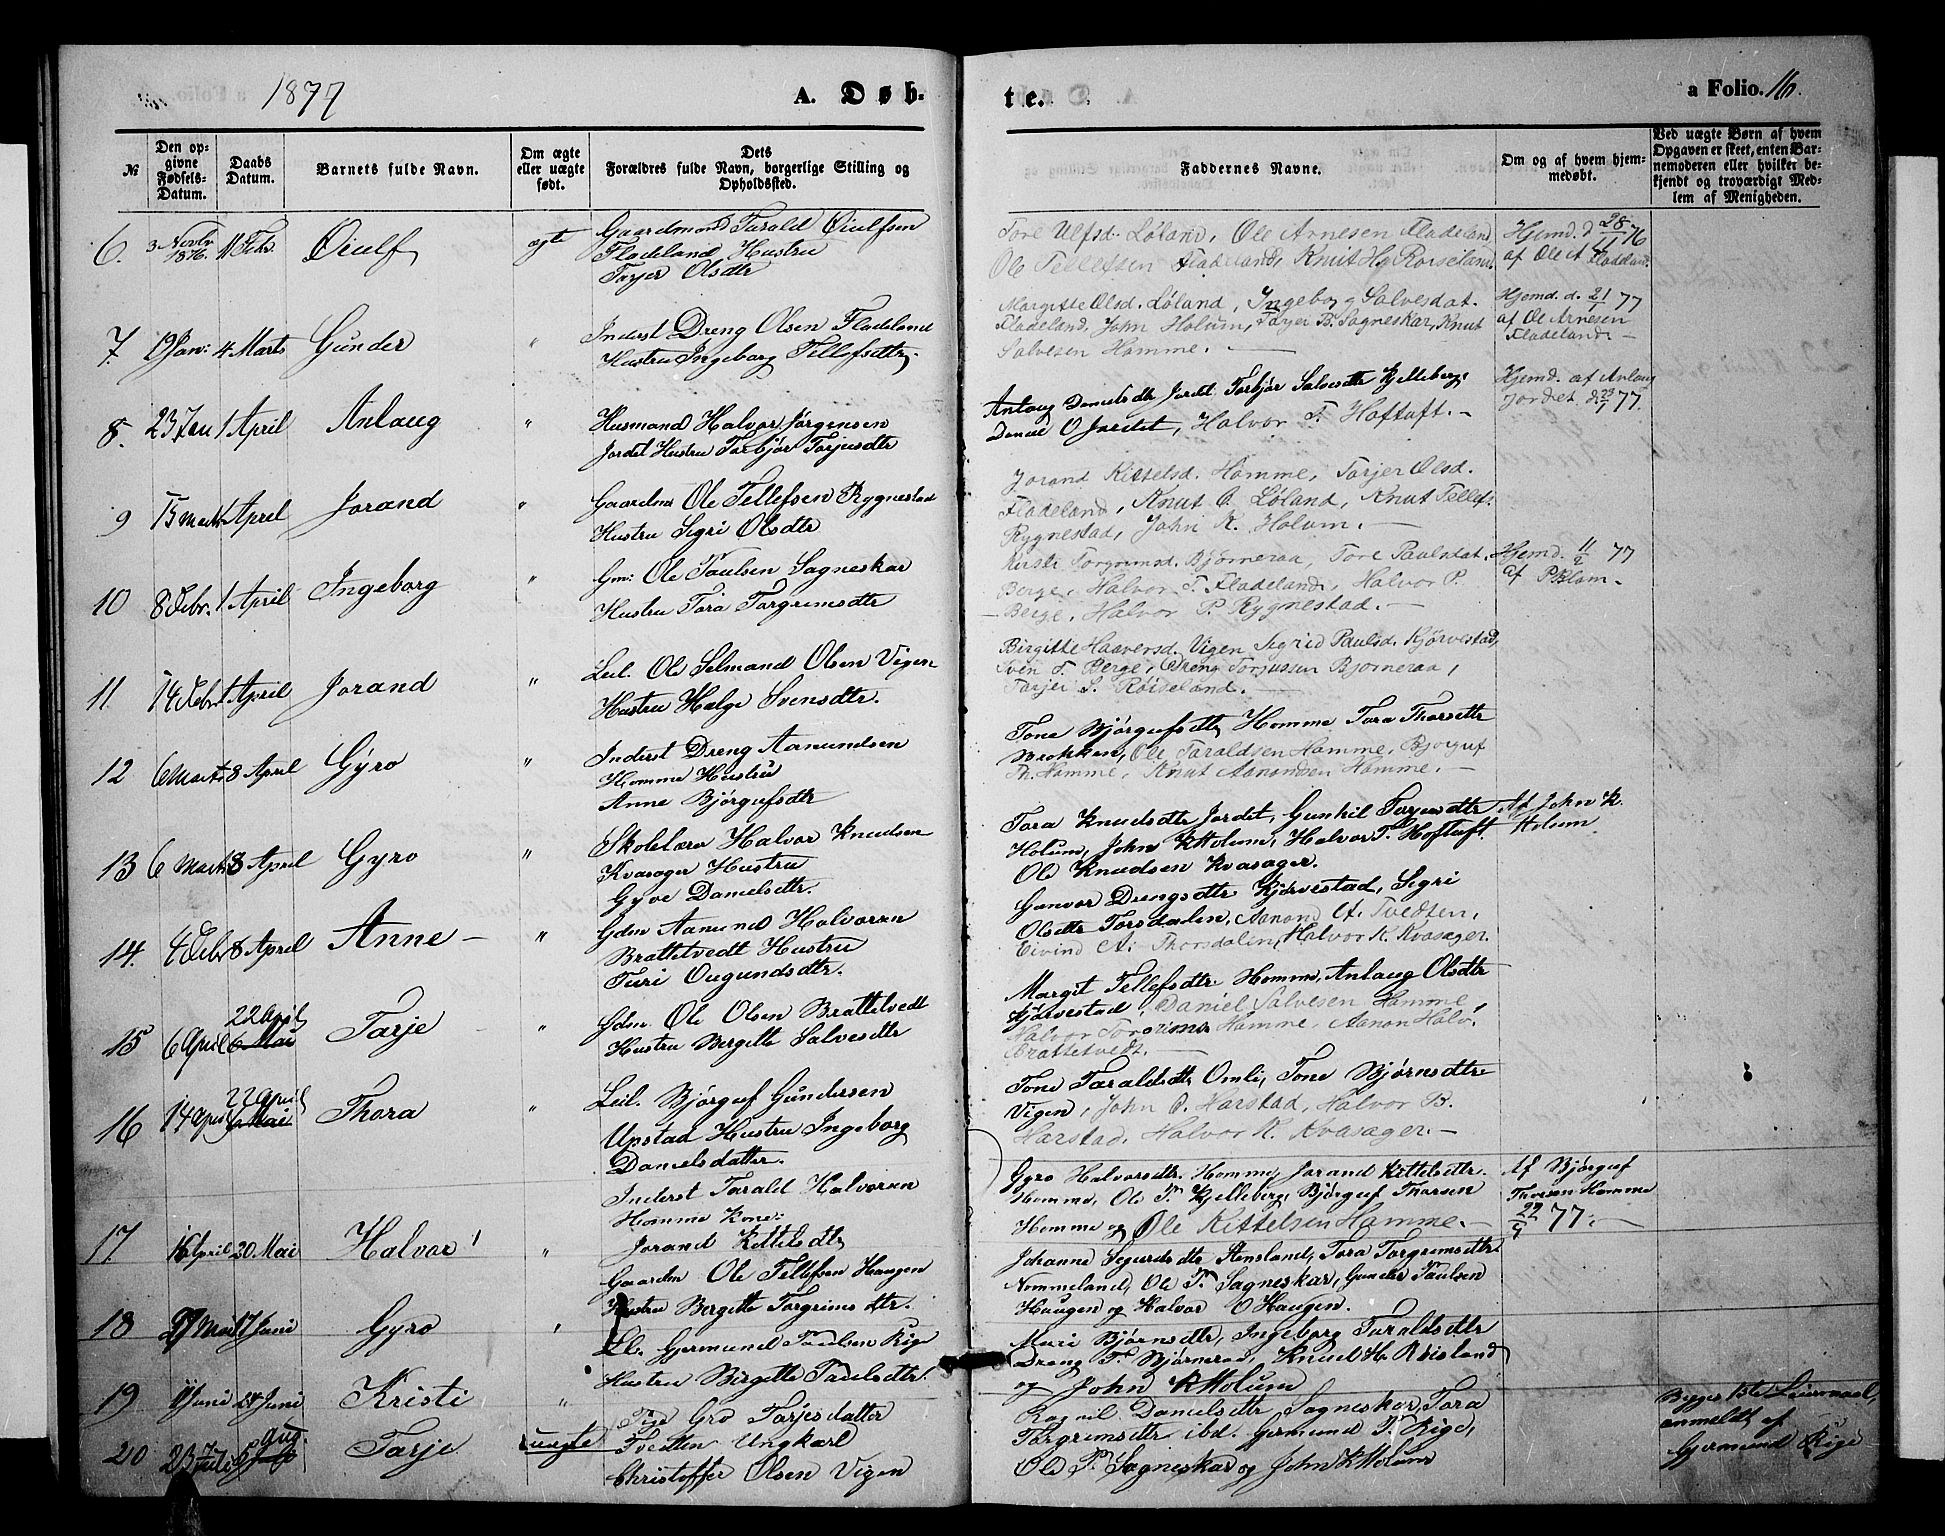 1877
A. Døb-
te.
a Folio. 16.
№
Den op-
givne
Fødsels-
Datum.
Daabs
Datum.
Barnets fulde Navn.
Om ægte
eller uægte
født.
Dets
Forældres fulde Navn, borgerlige Stilling og
Opholdssted.
Faddernes Navne.
Om og af hvem hjem-
medøbt.
Ved uægte Børn af hvem
Opgaven er skeet, enten Bar-
nemoderen eller hvilker be-
kjendt og troværdigt Med-
lem af Menigheden.
6. 3 Novbr 1876. 11 Febr. Øiulf ægte
Gaardmand Tarald Øiulfsen
Fladeland Hustru
Torjer Olsdtr
Tore Ulfsd. Løland, Ole Arnesen Fladeland
Ole Tellefsen Fladeland, Knut Hg Røiseland.
Hjemd. d 28/11 76
af Ole A Fladeland.
7. 9 Jan: 4 Marts Gunder "
Inderst Dreng Olsen Fladeland
Hustru Ingeborg Tellefsdtr.
Margitte Olsd. Løland, Ingeborg Salvesdat.
Fladeland, John Holum, Tarjer B. Sagneskar, Knut
Salvesen Homme.
Hjemd. d. 21/1 77
af Ole Arnesen
Fladeland
8. 23 Jan 1 April Anlaug "
Husmand Halvor Jørgensen
Jordet Hustru Torbjør Torjusdtr
Anlaug Danielsdtr Jordet Torbjør Salvesdtr Kjelleberg,
Daniel O Jordet, Halvor T. Hoftuft.
Hjemd. af Anlaug
Jordet d. 23/1 77.
9 15 Marts 1 April Jorand "
Gaardm Ole Tellefsen Rygnestad
Hustru Sigri Olsdtr
Jorand Kittelsd. Homme, Tarjer Olsd.
Fladeland, Knut O. Løland, Knut Tellefs.
Rygnestad, John K. Holum.
10 8 Febr. 1 April Ingeborg "
Gm: Ole Paulsen Sagneskar
Hustru Tora Torgrimsdtr
Kirsti Torgrimsd. Bjørneraa, Tore Paulsdat.
Berge, Halvor T. Fladeland, Halvor P.
Berge, Halvor P. Rygnestad.
Hjemd. 11/2 77
af P Blom.
11. 14 Febr 1 April Jorand "
Leil. Ole Selmand Olsen Vigen
Hustru Helge Svensdtr.
Birgitte Haaversd. Vigen Sigrid Paulsd. Kjørvestad,
Sven T. Berge, Dreng Torjussen Bjorneraa,
Tarjer S. Røiseland.
12 6 Marts 8 April Gyro "
Inderst Dreng Aanundsen
Homme Hustru
Anne Bjørgufsdtr
Tone Bjørgufsdtr Homme Tora Thorsdtr
Brokken, Ole Taraldsen Homme, Bjorguf
Th. Homme, Knut Aanondsen Homme.
13 6 Marts 8 April Gyro "
Skolelærer Halvor Knudsen
Kvasager Hustru
Gyve Danielsdtr.
Tora Knudsdtr Jordet, Gunhil Torjusdtr
Holum, John K Holum, Halvor T. Hoftuft.
Ole Knudsen Kvasager.
Af John K.
Holum
14. 4 Febr 8 April Anne "
Gdm Aanund Halvorsen
Brattetvedt Hustru
Turi Ougundsdtr.
Gunvor Drengsdtr Kjørvestad, Sigri
Olsdtr Torsdalen, Aanond A. Tvedten,
Eivind A. Thorsdalen, Halvor K. Kvasager.
15 6 April 22 April 6 Mai Tarje "
Gdm Ole Olsen Brattetvedt
Hustru Bergitte Salvesdtr
Margit Tellefsdtr Homme, Anlaug Olsdtr
Kjørvestad, Daniel Salvesen Homme,
Halvor Torgrims. Homme, Aanon Halv.
Brattetvedt.
16 14 April 22 April 6 Mai Thora "
Leil. Bjørguf Gundersen
Upstad Hustru Ingeborg
Danielsdatter.
Tone Taraldsdtr Omli, Tone Bjørnsdtr
Vigen, John O. Harstad, Halvor B.
Harstad, Halvor K. Kvasager.
17. 16 April 20 Mai Halvor "
Inderst Tarald Halvorsen
Homme Kone:
Jorand Kittelsdtr
Gyro Halvorsdtr. Homme, Jorand Kittelsdtr.
Homme, Ole T. Kjelleberg Bjørguf Thorsen
Homme og Ole Kittelsen Homme.
Af Bjørguf
Thorsen Homme
22/4 77.
18 27 Mai 17 Juni Gyro "
Gaardm Ole Tellefsen Haugen
Hustru Bergitte Torgrimsdtr.
Johanne Sigurdsdtr Stensland, Tora Torgrimsdtr
Nommeland, Ole P. Sagneskar, Gunder Paulsen
Haugen og Halvor O Haugen.
19 1 Juni 24 Juni Kristi "
Ll. Gjermund Paulsen Rige
Hustru Birgitte Tadelsdtr.
Mari Bjørnsdtr, Ingeborg Taraldsdtr
Dreng T. Bjørneraa, Knud H. Røisland
og John K Holum
20 23 Juli 5 Aug. Tarje uægte
Pige Gro Tarjesdatter
Tvedten Ungkarl
Christoffer Olsen Vigen
Ragnil Danielsdtr Sagneskar, Tora
Torgrimsdtr ibd. Gjermund P. Rige,
Ole P. Sagneskar og John K Holum
Begges 1ste Leiermaal,
anmeldt af
Gjermund Rige